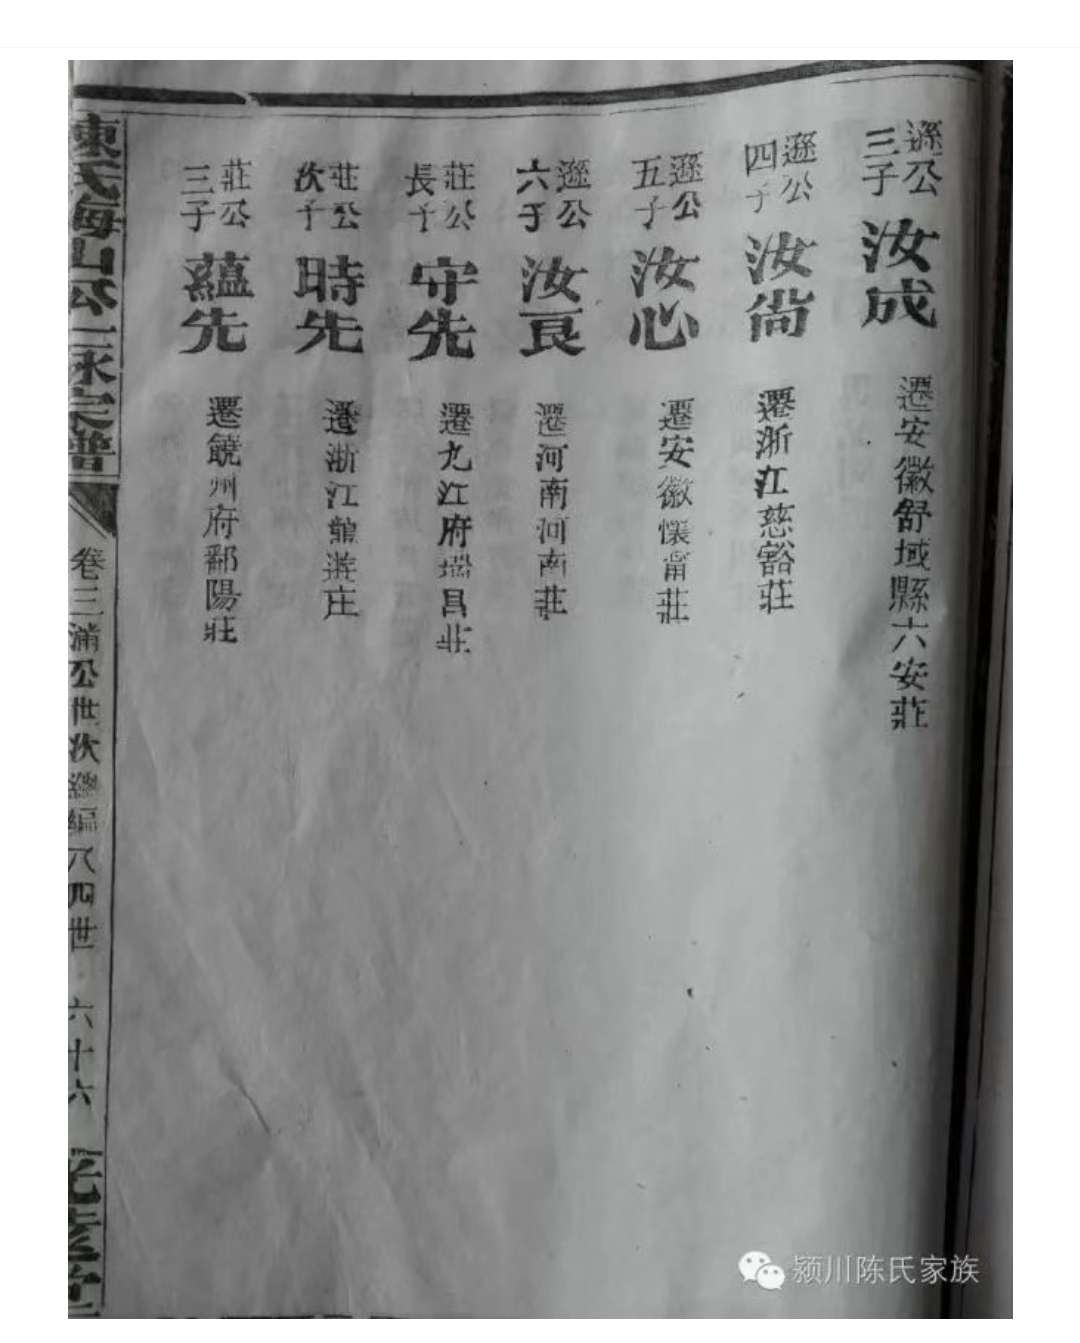 遜公三子 汝成 遷安徽舒域縣六安莊
遜公四子 汝尙 遷浙江慈谿莊
遜公五子 汝心 遷安徽懷甯莊
遜公六子 汝良 遷河南河南莊
莊公長子 守先 遷九江府瑞昌莊
莊公次子 時先 遷浙江龍游庄
莊公三子 蘊先 遷饒州府鄱陽莊
陳氏海山公一脉宗譜 卷三滿公世次總編 八四世 六十六
颍川陈氏家族